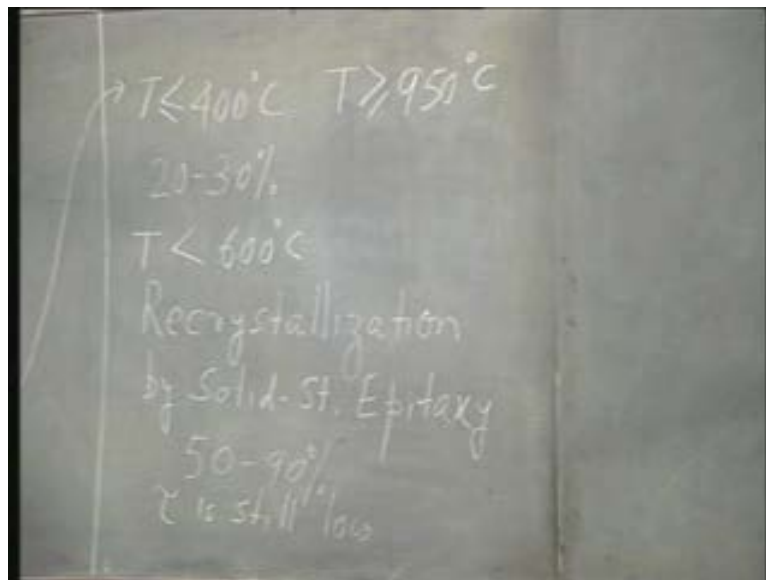 T ≤ 400°C T ≥ 950°C
20-30%
T < 600°C
Recrystallization
by Solid-St. Epitaxy
50-90%
τ is still low